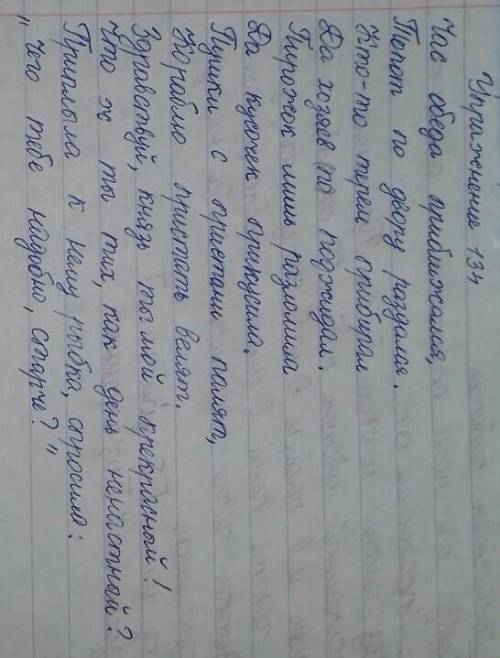 Упражнение 134
Час обеда приближался,
Топот по двору раздался.
Кто-то терем прибирал
Да хозяев по поджидал.
Пирожок лишь разломила
Да кусочек прикусила.
Пушки с пристани палят,
Кораблю пристать велят.
Здравствуй, князь ты мой прекрасный!
Что ж ты тих, как день ненастный?
Приплыла к нему рыбка, спросила:
„Чего тебе надобно, старче?"